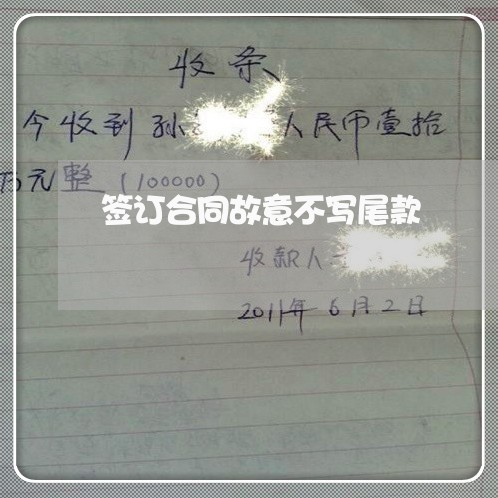 收条
今收到孙 人民币壹拾
万元整（100000）
签订合同故意不写尾款
收款人
2011年6月2日